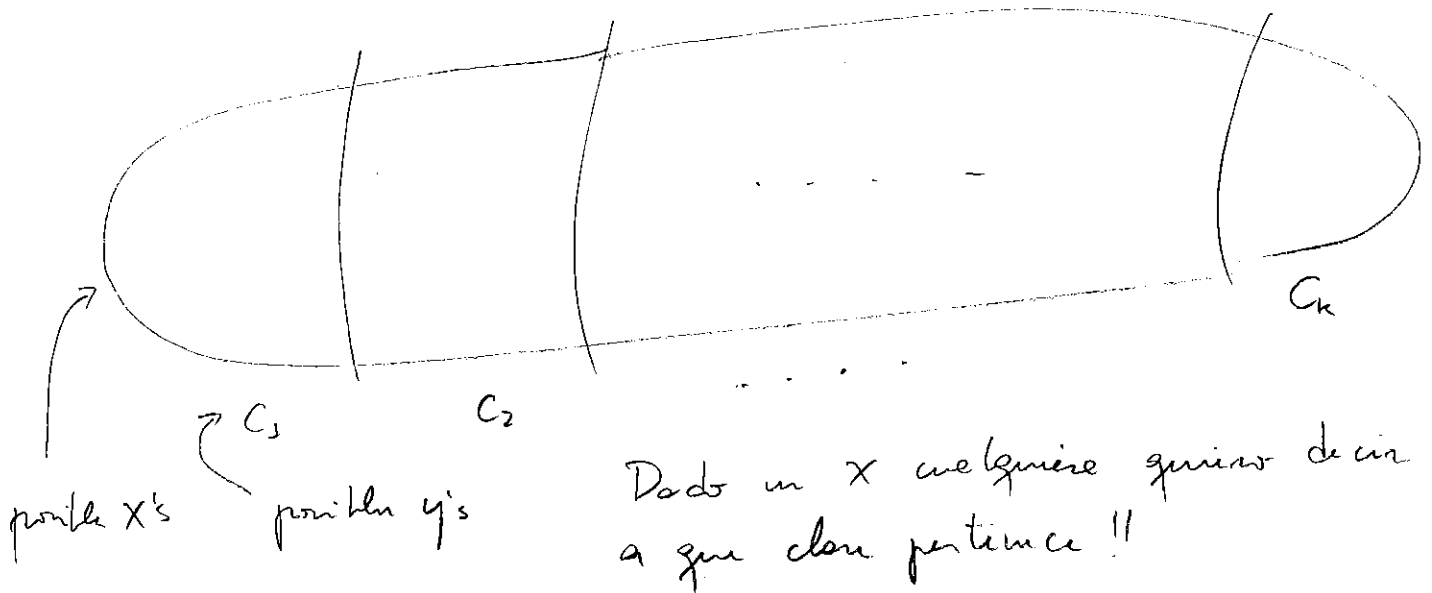 C₁
C₂
Cₖ
posibles x's
posibles y's
Dado un x cualquiera quiero decir
a que clase pertenece !!